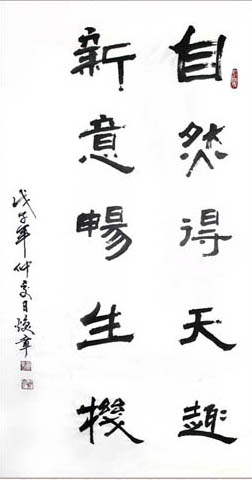 自然得天趣
新意暢生機
戊子年仲夏日煥章